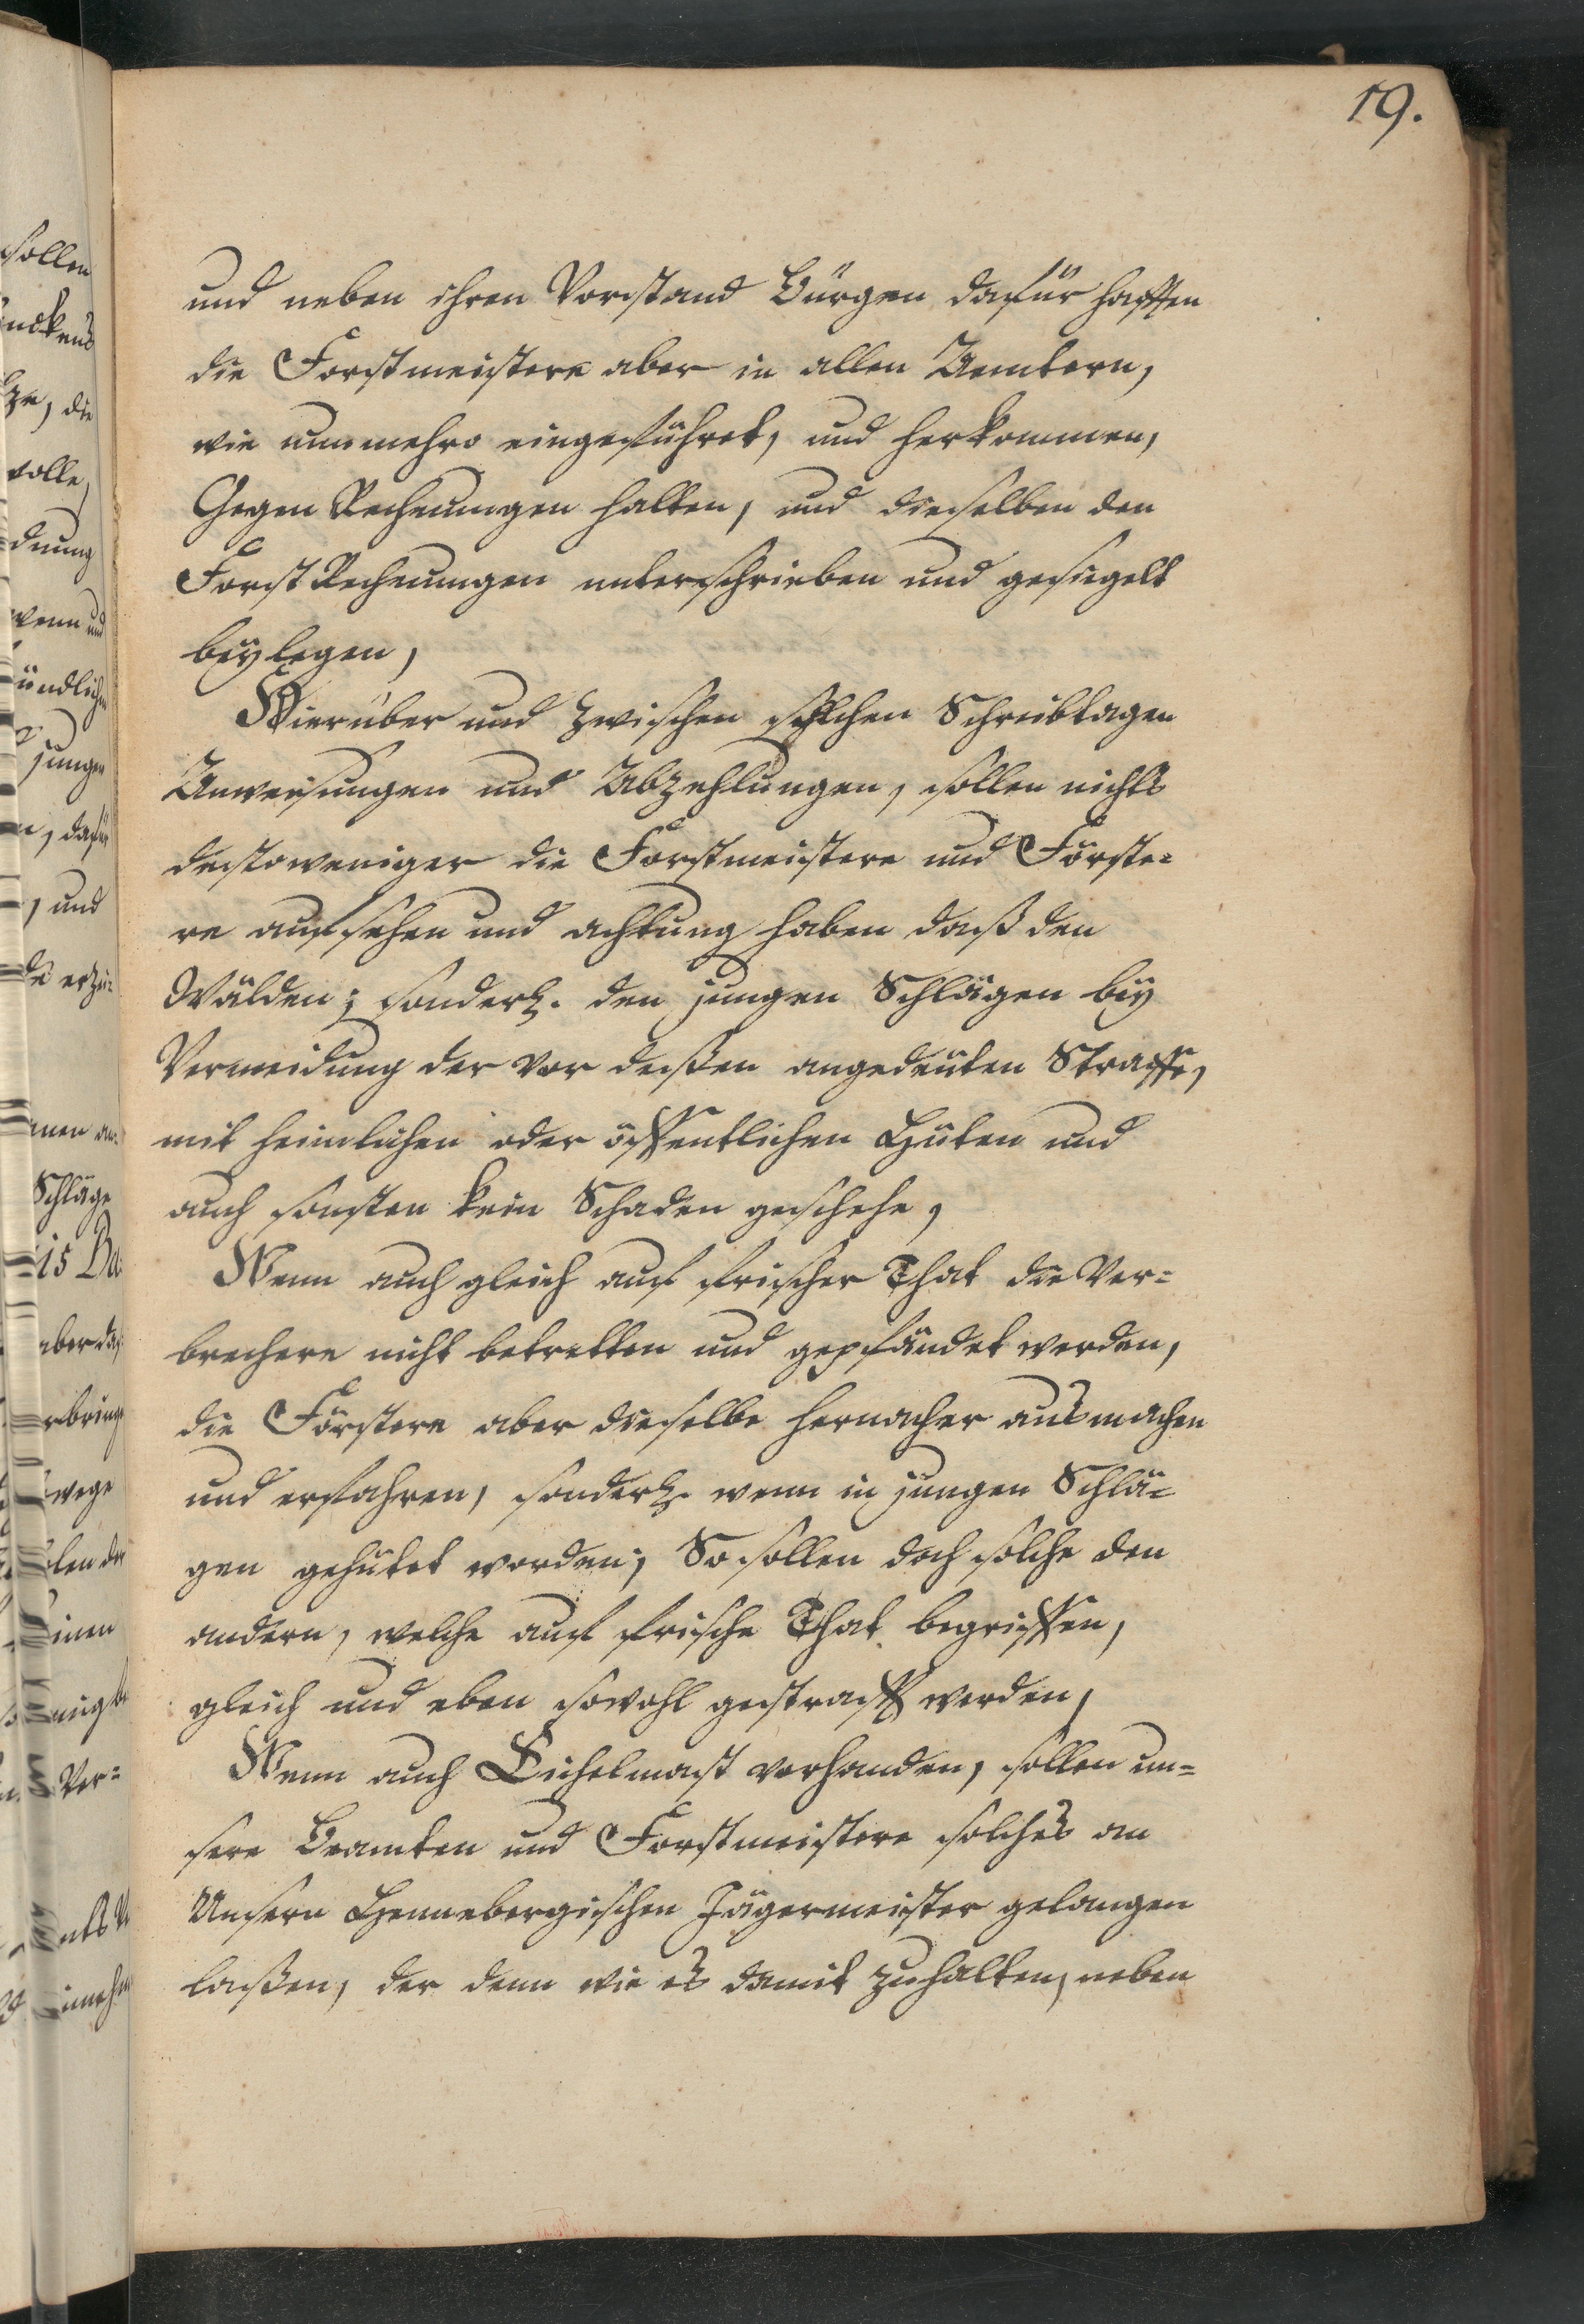 19.
und neben ihren Vorstand Bürgen dafür hafften
die Forstmeistere aber in allen Aemtern,
wie nunmehro eingeführet, und herkommen,
Gegen Rechnungen halten, und dieselben den
Forst Rechnungen unterschrieben und gesiegelt
beylegen,
Hierüber und zwischen solchen Schreibtagen
Anweisungen und Abzehlungen, sollen nichts
destoweniger die Forstmeistere und Förste=
re aufsehen und achtung haben daß den
Wälden; sonderl. den jungen Schlägen bey
Vermeidung der vor deßen angedeuten Straffe,
mit heimlichen oder öffentlichen Hüten und
auch sonsten kein Schaden geschehe,
Wenn auch gleich auf frischer That die Ver=
brechere nicht betretten und gepfändet werden,
die Förstere aber dieselbe hernacher ausmachen
und erfahren, sonderl. wenn in jungen Schlä=
gen gehütet worden; So sollen doch solche den
andern, welche auf frische That begriffen,
gleich und eben sowohl gestrafft werden,
Wenn auch Eichelmast vorhanden, sollen un=
sere Beamten und Forstmeistere solches an
Unsern Hennebergischen Jägermeister gelangen
laßen, der denn wie es damit zuhalten, neben